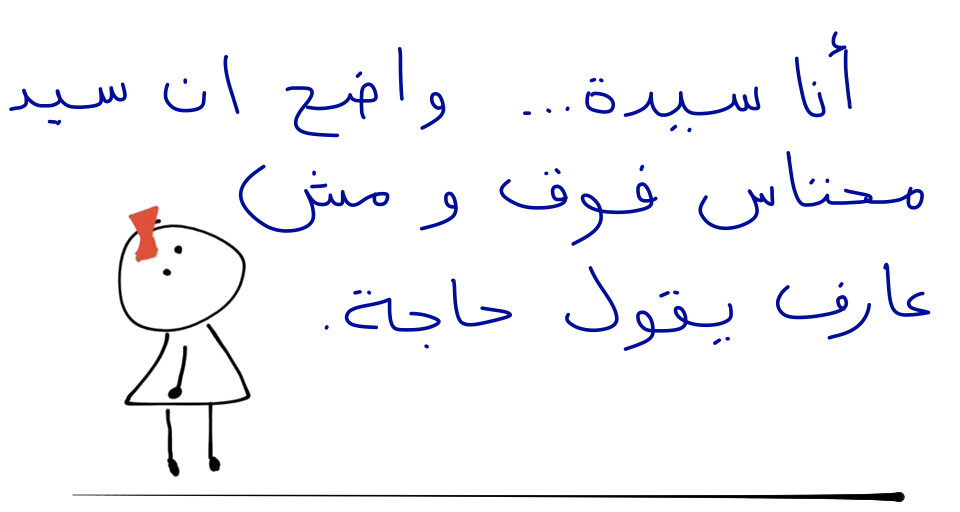 أنا سيدة... واضح ان سيد
محتاس فوق و مش
عارف يقول حاجة.